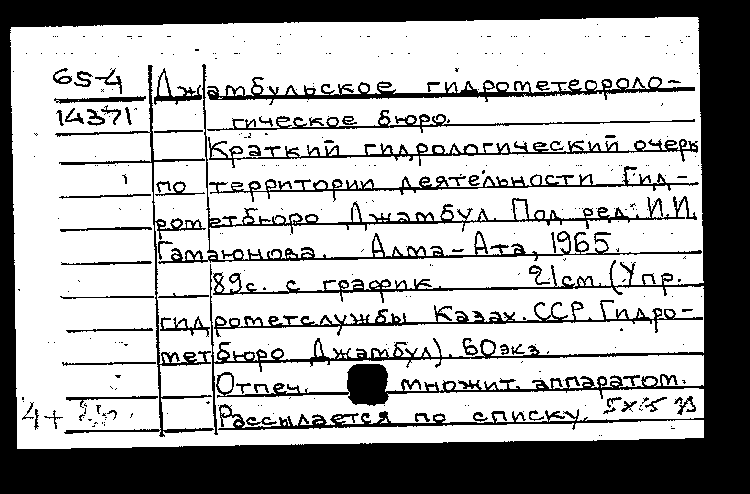 65-4 Джамбульское гидрометеороло-
14371 гическое бюро.
Краткий гидрологический очерк
по территории деятельности Гид-
рометбюро Джамбул. Под ред. И.И.
Гамаюнова. Алма-Ата, 1965.
89с. с график. 21см. (Упр.
гидрометслужбы Казах. ССР. Гидро-
метбюро Джамбул). 60экз.
Отпеч. множит. аппаратом.
4+ Рассылается по списку.